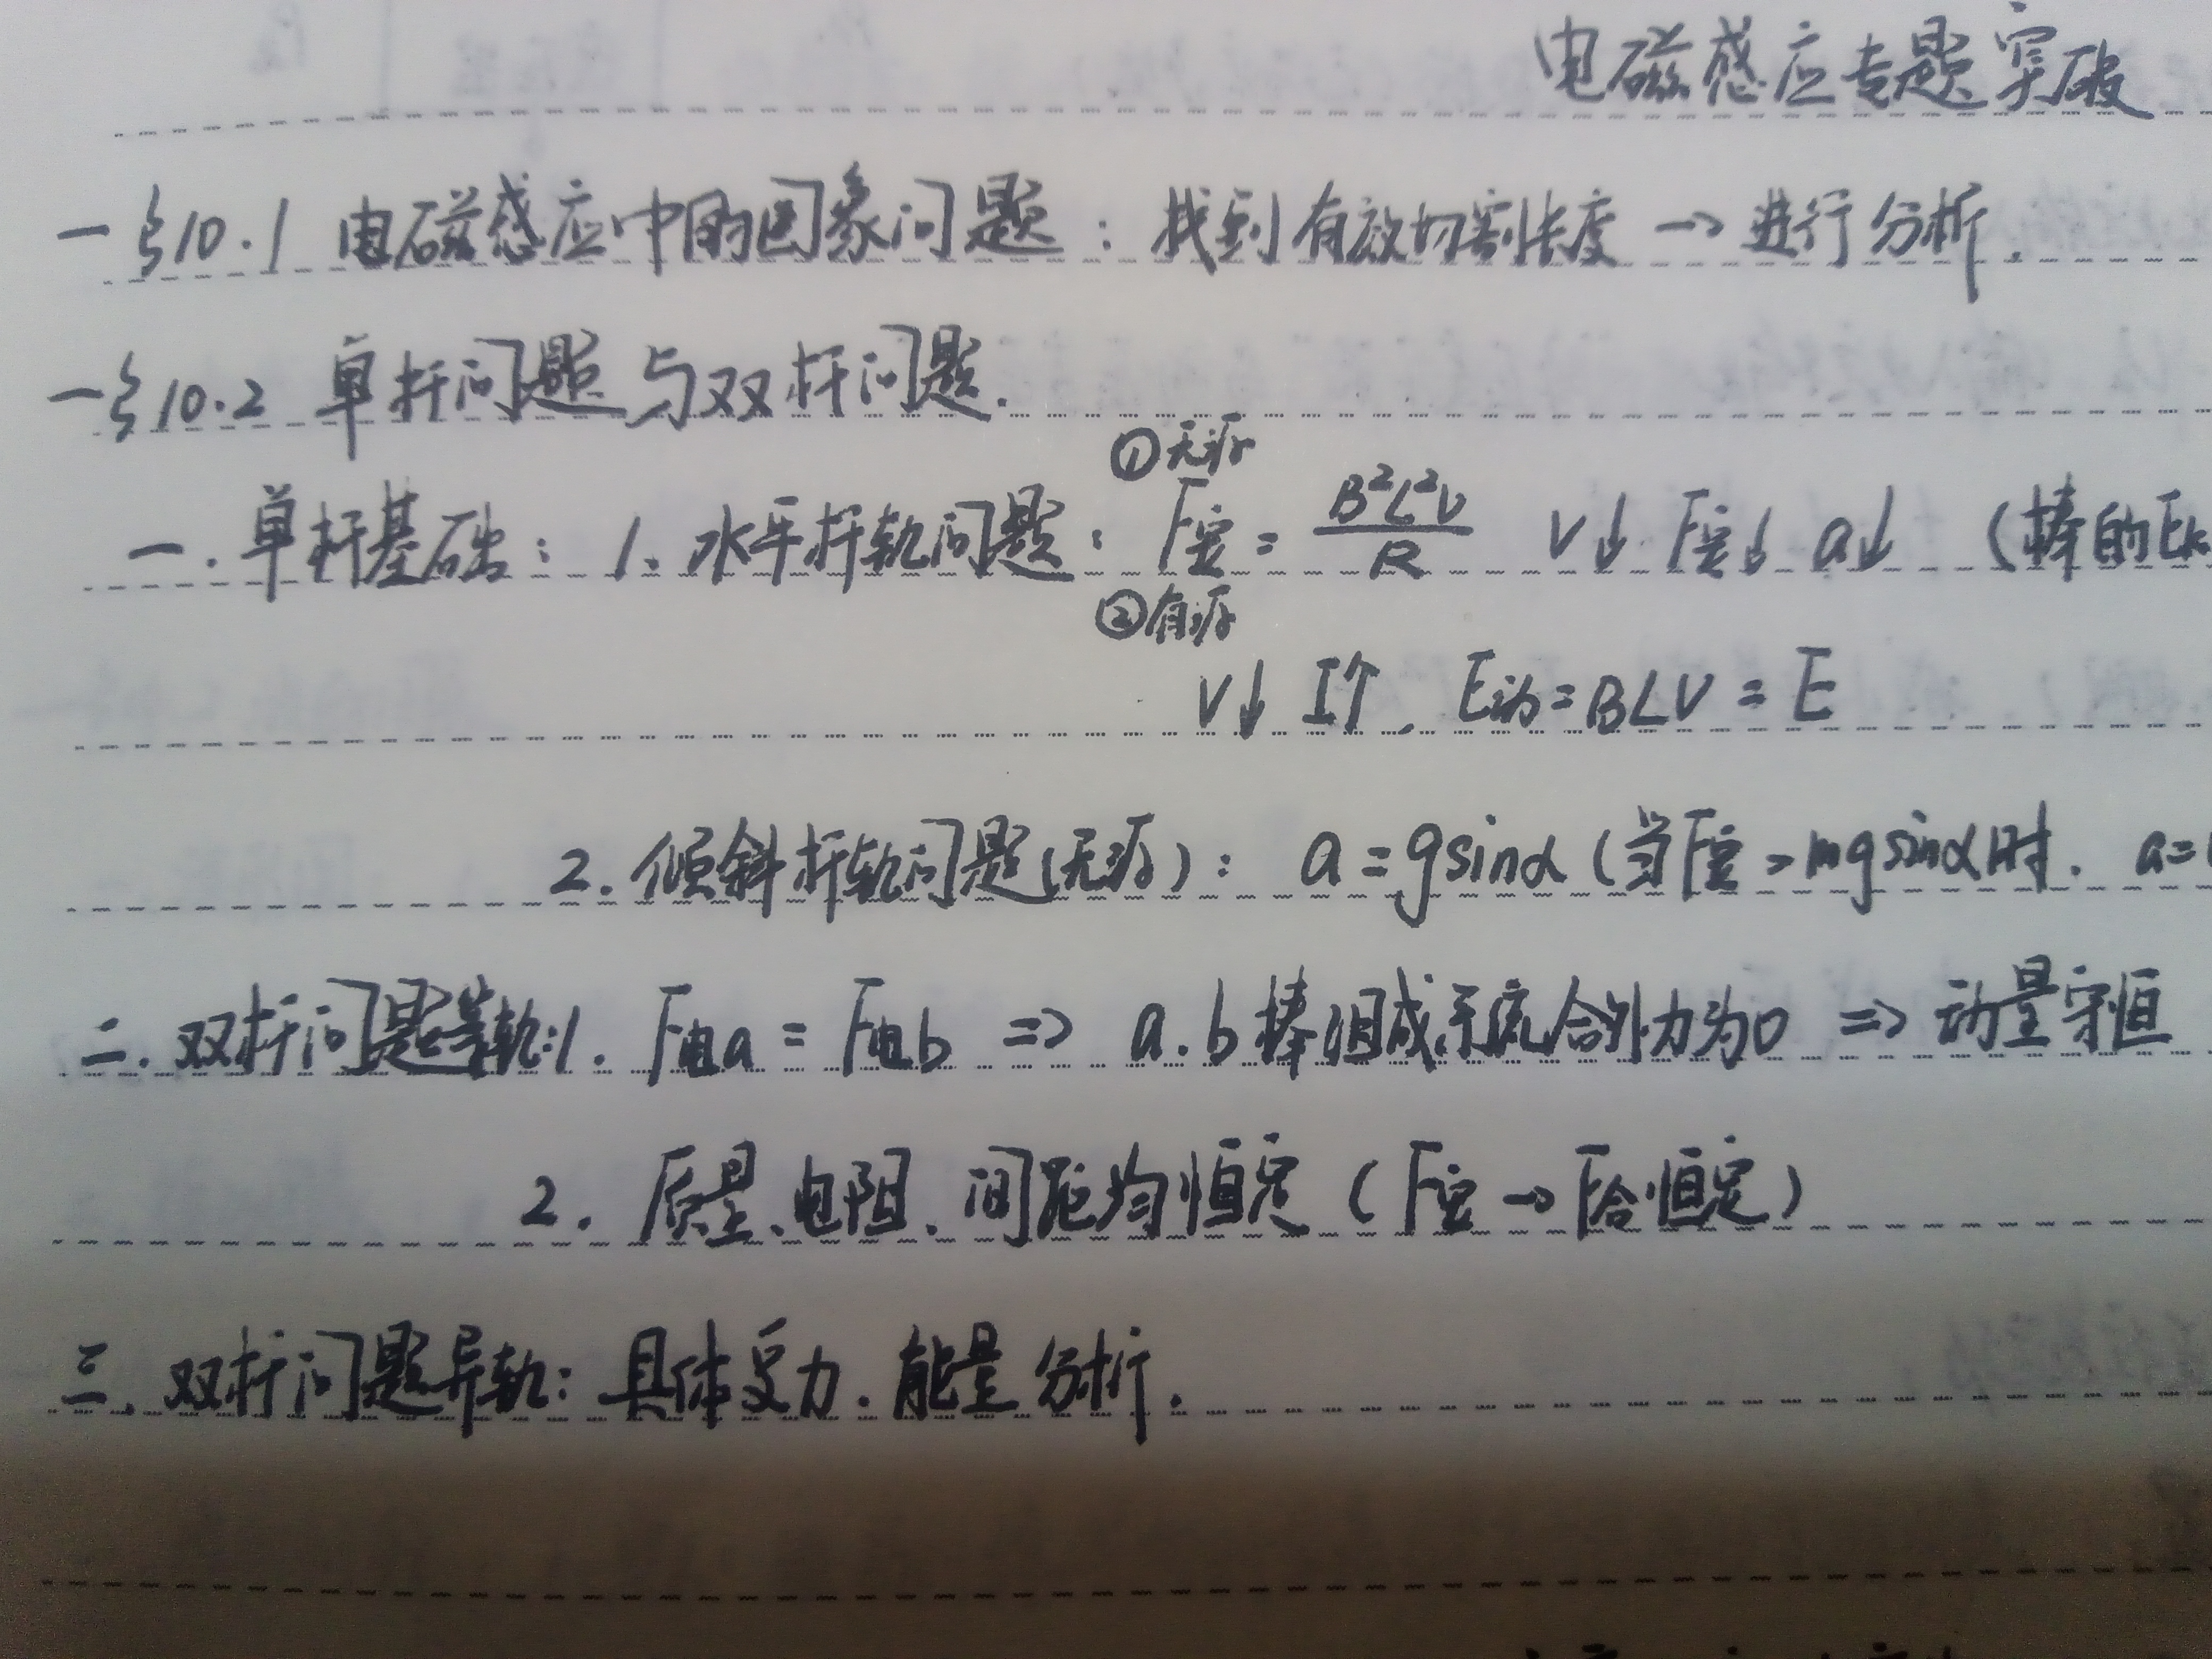 电磁感应专题突破
一§10.1 电磁感应中的图象问题：找到有效切割长度 → 进行分析.
一§10.2 单杆问题与双杆问题.
①无源
一.单杆基础：1、水平杆轨问题：F安 = B²L²V/R V↓ F安↓ a↓ (棒的Ek
②有源
V↓ I↑. E动=BLV = E
2.倾斜杆轨问题(无源)： a=gsinα (当F安=mgsinα时. a=
二.双杆问题等轨:1. F电a = F电b => a.b棒组成系统合外力为0 => 动量守恒
2. 质量、电阻、间距均恒定 (F安→F合恒定)
三.双杆问题异轨: 具体受力.能量分析.